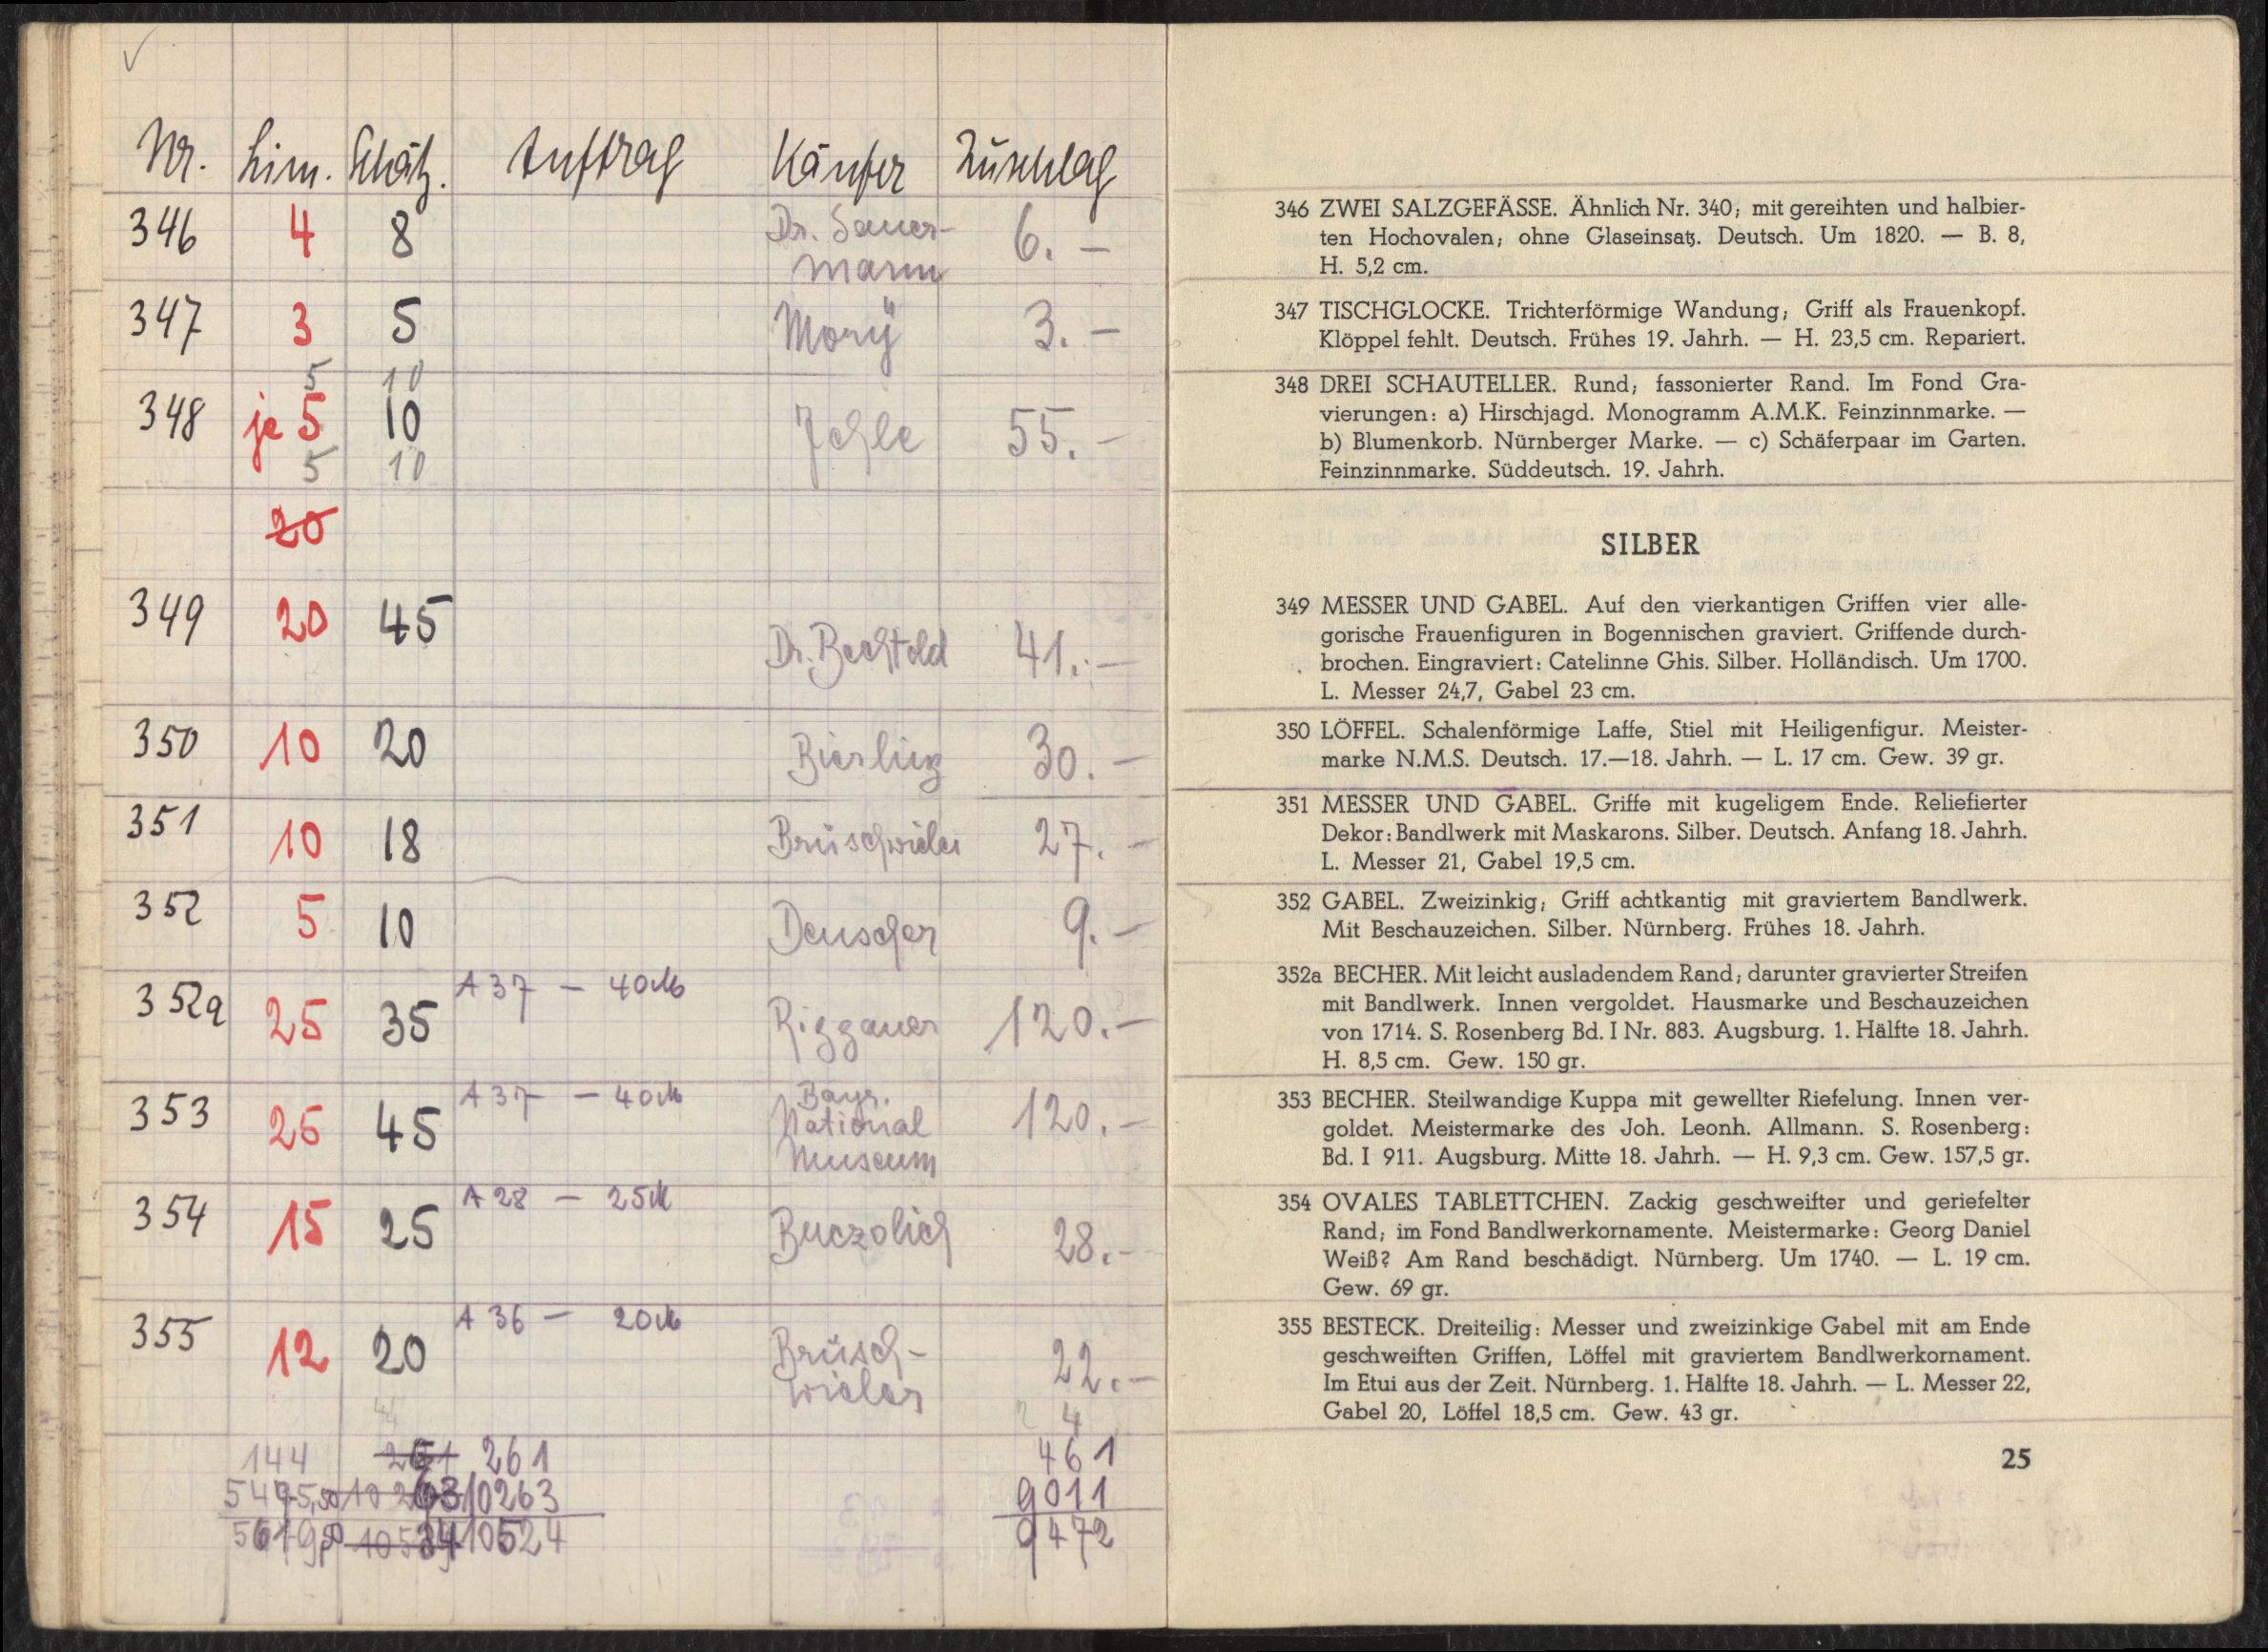 Nr. Lim. Schätz. Auftrag Käufer Zuschlag
346 4 8 Dr. Sauer- 6.–
mann
347 3 5 Morÿ 3.–
5 10
348 je 5 10 Jehle 55.–
5 10
20
349 20 45 Dr. Bechtold 41.–
350 10 20 Bierling 30.–
351 10 18 Brüschwiler 27.–
352 5 10 Deuscher 9.–
352a 25 35 A 37 – 40 M Riggauer 120.–
353 25 45 A 37 – 40 M Bayr. 120.–
National
Museum
354 15 25 A 28 – 25 M Buczolich 28.–
355 12 20 A 36 – 20 M Brüsch- 22.–
wieler
2 4
144 261 461
10263 9011
10524 9472
346 ZWEI SALZGEFÄSSE. Ähnlich Nr. 340; mit gereihten und halbier-
ten Hochovalen; ohne Glaseinsatz. Deutsch. Um 1820. — B. 8,
H. 5,2 cm.
347 TISCHGLOCKE. Trichterförmige Wandung; Griff als Frauenkopf.
Klöppel fehlt. Deutsch. Frühes 19. Jahrh. — H. 23,5 cm. Repariert.
348 DREI SCHAUTELLER. Rund; fassonierter Rand. Im Fond Gra-
vierungen: a) Hirschjagd. Monogramm A.M.K. Feinzinnmarke. —
b) Blumenkorb. Nürnberger Marke. — c) Schäferpaar im Garten.
Feinzinnmarke. Süddeutsch. 19. Jahrh.
SILBER
349 MESSER UND GABEL. Auf den vierkantigen Griffen vier alle-
gorische Frauenfiguren in Bogennischen graviert. Griffende durch-
brochen. Eingraviert: Catelinne Ghis. Silber. Holländisch. Um 1700.
L. Messer 24,7, Gabel 23 cm.
350 LÖFFEL. Schalenförmige Laffe, Stiel mit Heiligenfigur. Meister-
marke N.M.S. Deutsch. 17.—18. Jahrh. — L. 17 cm. Gew. 39 gr.
351 MESSER UND GABEL. Griffe mit kugeligem Ende. Reliefierter
Dekor: Bandlwerk mit Maskarons. Silber. Deutsch. Anfang 18. Jahrh.
L. Messer 21, Gabel 19,5 cm.
352 GABEL. Zweizinkig; Griff achtkantig mit graviertem Bandlwerk.
Mit Beschauzeichen. Silber. Nürnberg. Frühes 18. Jahrh.
352a BECHER. Mit leicht ausladendem Rand; darunter gravierter Streifen
mit Bandlwerk. Innen vergoldet. Hausmarke und Beschauzeichen
von 1714. S. Rosenberg Bd. I Nr. 883. Augsburg. 1. Hälfte 18. Jahrh.
H. 8,5 cm. Gew. 150 gr.
353 BECHER. Steilwandige Kuppa mit gewellter Riefelung. Innen ver-
goldet. Meistermarke des Joh. Leonh. Allmann. S. Rosenberg:
Bd. I 911. Augsburg. Mitte 18. Jahrh. — H. 9,3 cm. Gew. 157,5 gr.
354 OVALES TABLETTCHEN. Zackig geschweifter und geriefelter
Rand; im Fond Bandlwerkornamente. Meistermarke: Georg Daniel
Weiß? Am Rand beschädigt. Nürnberg. Um 1740. — L. 19 cm.
Gew. 69 gr.
355 BESTECK. Dreiteilig: Messer und zweizinkige Gabel mit am Ende
geschweiften Griffen, Löffel mit graviertem Bandlwerkornament.
Im Etui aus der Zeit. Nürnberg. 1. Hälfte 18. Jahrh. — L. Messer 22,
Gabel 20, Löffel 18,5 cm. Gew. 43 gr.
25